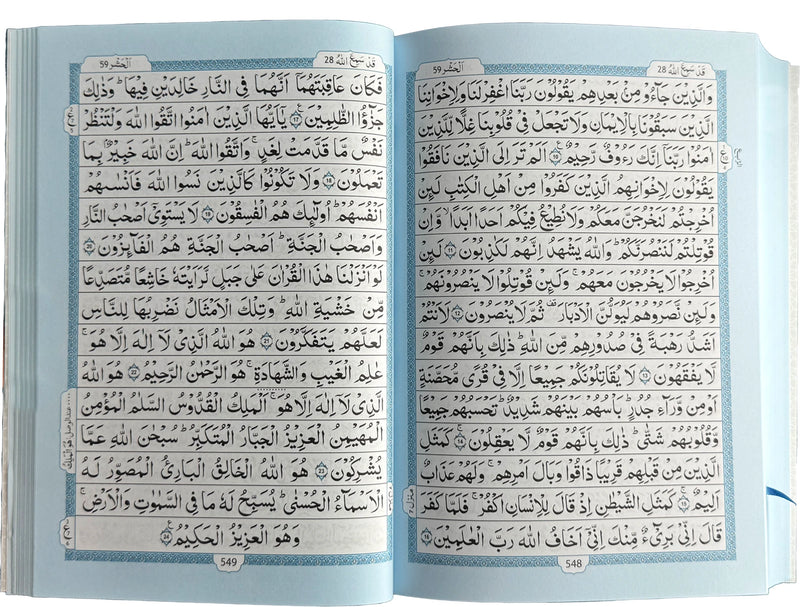 قَدْ سَمِعَ اللّٰهُ 28
اَلْحَشْر 59
وَالَّذِيْنَ جَآءُوْ مِنْۢ بَعْدِهِمْ يَقُوْلُوْنَ رَبَّنَا اغْفِرْ لَنَا وَلِاِخْوَانِنَا
الَّذِيْنَ سَبَقُوْنَا بِالْاِيْمَانِ وَلَا تَجْعَلْ فِيْ قُلُوْبِنَا غِلًّا لِّلَّذِيْنَ
اٰمَنُوْا رَبَّنَاۤ اِنَّكَ رَءُوْفٌ رَّحِيْمٌ ۝۱۰ اَلَمْ تَرَ اِلَى الَّذِيْنَ نَافَقُوْا
يَقُوْلُوْنَ لِاِخْوَانِهِمُ الَّذِيْنَ كَفَرُوْا مِنْ اَهْلِ الْكِتٰبِ لَىِٕنْ
اُخْرِجْتُمْ لَنَخْرُجَنَّ مَعَكُمْ وَلَا نُطِيْعُ فِيْكُمْ اَحَدًا اَبَدًاۙ وَّاِنْ
قُوْتِلْتُمْ لَنَنْصُرَنَّكُمْؕ وَاللّٰهُ يَشْهَدُ اِنَّهُمْ لَكٰذِبُوْنَ ۝۱۱ لَىِٕنْ
اُخْرِجُوْا لَا يَخْرُجُوْنَ مَعَهُمْۚ وَلَىِٕنْ قُوْتِلُوْا لَا يَنْصُرُوْنَهُمْۚ
وَلَىِٕنْ نَّصَرُوْهُمْ لَيُوَلُّنَّ الْاَدْبَارَ۫ ثُمَّ لَا يُنْصَرُوْنَ ۝۱۲ لَاَنْتُمْ
اَشَدُّ رَهْبَةً فِيْ صُدُوْرِهِمْ مِّنَ اللّٰهِؕ ذٰلِكَ بِاَنَّهُمْ قَوْمٌ
لَّا يَفْقَهُوْنَ ۝۱۳ لَا يُقَاتِلُوْنَكُمْ جَمِيْعًا اِلَّا فِيْ قُرًى مُّحَصَّنَةٍ
اَوْ مِنْ وَّرَآءِ جُدُرٍؕ بَاْسُهُمْ بَيْنَهُمْ شَدِيْدٌؕ تَحْسَبُهُمْ جَمِيْعًا
وَّقُلُوْبُهُمْ شَتّٰىؕ ذٰلِكَ بِاَنَّهُمْ قَوْمٌ لَّا يَعْقِلُوْنَ ۝۱۴ كَمَثَلِ
الَّذِيْنَ مِنْ قَبْلِهِمْ قَرِيْبًا ذَاقُوْا وَبَالَ اَمْرِهِمْۚ وَلَهُمْ عَذَابٌ
اَلِيْمٌ ۝۱۵ كَمَثَلِ الشَّيْطٰنِ اِذْ قَالَ لِلْاِنْسَانِ اكْفُرْۚ فَلَمَّا كَفَرَ
قَالَ اِنِّيْ بَرِيْٓءٌ مِّنْكَ اِنِّيْۤ اَخَافُ اللّٰهَ رَبَّ الْعٰلَمِيْنَ ۝۱۶
548
قَدْ سَمِعَ اللّٰهُ 28
اَلْحَشْر 59
فَكَانَ عَاقِبَتَهُمَاۤ اَنَّهُمَا فِي النَّارِ خَالِدَيْنِ فِيْهَاؕ وَذٰلِكَ
جَزٰٓؤُا الظّٰلِمِيْنَ ۝۱۷ يٰۤاَيُّهَا الَّذِيْنَ اٰمَنُوا اتَّقُوا اللّٰهَ وَلْتَنْظُرْ
نَفْسٌ مَّا قَدَّمَتْ لِغَدٍۚ وَاتَّقُوا اللّٰهَؕ اِنَّ اللّٰهَ خَبِيْرٌۢ بِمَا
تَعْمَلُوْنَ ۝۱۸ وَلَا تَكُوْنُوْا كَالَّذِيْنَ نَسُوا اللّٰهَ فَاَنْسٰىهُمْ
اَنْفُسَهُمْؕ اُولٰٓىِٕكَ هُمُ الْفٰسِقُوْنَ ۝۱۹ لَا يَسْتَوِيْۤ اَصْحٰبُ النَّارِ
وَاَصْحٰبُ الْجَنَّةِؕ اَصْحٰبُ الْجَنَّةِ هُمُ الْفَآىِٕزُوْنَ ۝۲۰
لَوْ اَنْزَلْنَا هٰذَا الْقُرْاٰنَ عَلٰى جَبَلٍ لَّرَاَيْتَهٗ خَاشِعًا مُّتَصَدِّعًا
مِّنْ خَشْيَةِ اللّٰهِؕ وَتِلْكَ الْاَمْثَالُ نَضْرِبُهَا لِلنَّاسِ
لَعَلَّهُمْ يَتَفَكَّرُوْنَ ۝۲۱ هُوَ اللّٰهُ الَّذِيْ لَاۤ اِلٰهَ اِلَّا هُوَۚ
عٰلِمُ الْغَيْبِ وَالشَّهَادَةِۚ هُوَ الرَّحْمٰنُ الرَّحِيْمُ ۝۲۲ هُوَ اللّٰهُ
الَّذِيْ لَاۤ اِلٰهَ اِلَّا هُوَۚ اَلْمَلِكُ الْقُدُّوْسُ السَّلٰمُ الْمُؤْمِنُ
الْمُهَيْمِنُ الْعَزِيْزُ الْجَبَّارُ الْمُتَكَبِّرُؕ سُبْحٰنَ اللّٰهِ عَمَّا
يُشْرِكُوْنَ ۝۲۳ هُوَ اللّٰهُ الْخَالِقُ الْبَارِئُ الْمُصَوِّرُ لَهُ
الْاَسْمَآءُ الْحُسْنٰىؕ يُسَبِّحُ لَهٗ مَا فِي السَّمٰوٰتِ وَالْاَرْضِۚ
وَهُوَ الْعَزِيْزُ الْحَكِيْمُ ۝۲۴
549